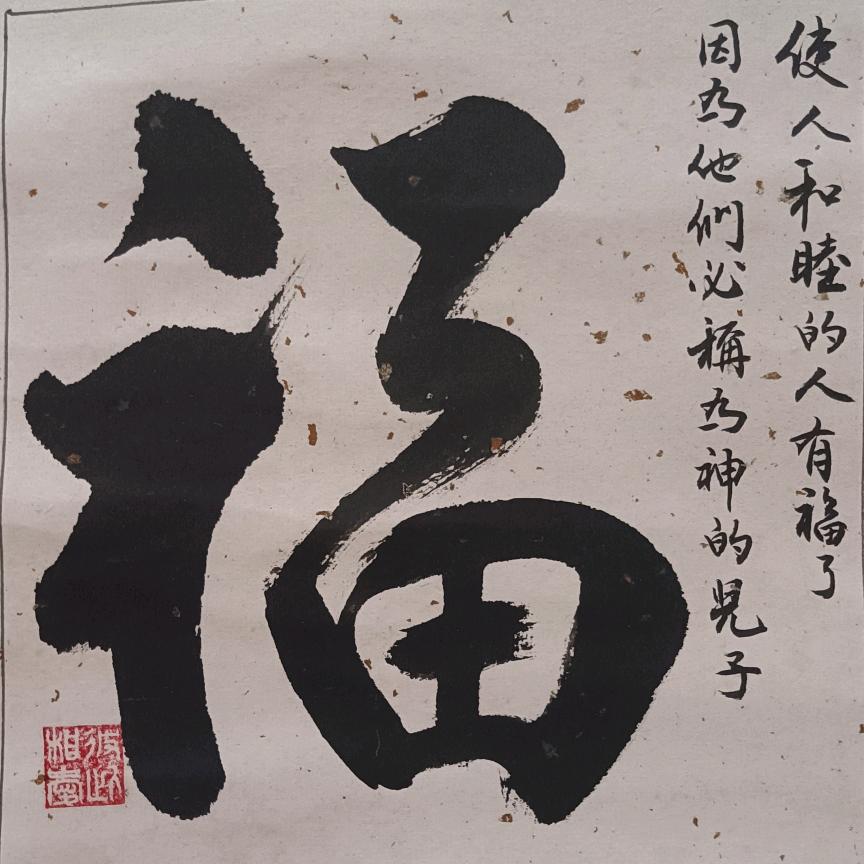 使人和睦的人有福了
因为他們必稱为神的兒子
福
彼此
相愛